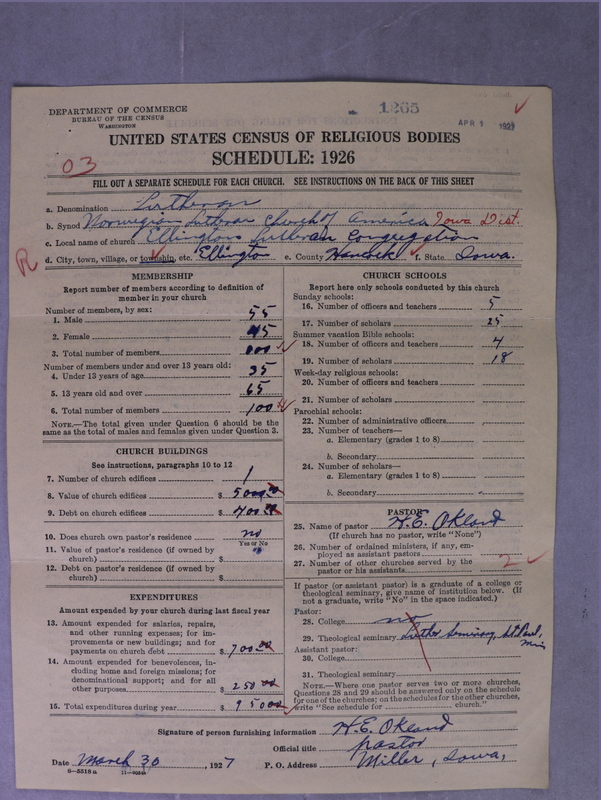 DEPARTMENT OF COMMERCE
BUREAU OF THE CENSUS
WASHINGTON
1265
APR 1 1927
UNITED STATES CENSUS OF RELIGIOUS BODIES
SCHEDULE: 1926
03
FILL OUT A SEPARATE SCHEDULE FOR EACH CHURCH. SEE INSTRUCTIONS ON THE BACK OF THIS SHEET
a. Denomination Lutheran
b. Synod Norwegian Lutheran Church of America Iowa Dist.
c. Local name of church Ellington Lutheran Congregation
R
d. City, town, village, or township, etc. Ellington e. County Hancock f. State Iowa.
MEMBERSHIP
Report number of members according to definition of
member in your church
Number of members, by sex:
1. Male 55
2. Female 45
3. Total number of members
Number of members under and over 13 years old:
4. Under 13 years of age 35
5. 13 years old and over 65
6. Total number of members 100
NOTE.—The total given under Question 6 should be the
same as the total of males and females given under Question 3.
CHURCH BUILDINGS
See instructions, paragraphs 10 to 12
7. Number of church edifices 1
8. Value of church edifices $ 5000.00
9. Debt on church edifices $ 400.00
10. Does church own pastor's residence? no
Yes or No
11. Value of pastor's residence (if owned by
church) $
12. Debt on pastor's residence (if owned by
church) $
EXPENDITURES
Amount expended by your church during last fiscal year
13. Amount expended for salaries, repairs,
and other running expenses; for im-
provements or new buildings; and for
payments on church debt $ 700.00
14. Amount expended for benevolences, in-
cluding home and foreign missions; for
denominational support; and for all
other purposes $ 250.00
15. Total expenditures during year $ 950.00
CHURCH SCHOOLS
Report here only schools conducted by this church
Sunday schools:
16. Number of officers and teachers 5
17. Number of scholars 25
Summer vacation Bible schools:
18. Number of officers and teachers 4
19. Number of scholars 18
Week-day religious schools:
20. Number of officers and teachers
21. Number of scholars
Parochial schools:
22. Number of administrative officers
23. Number of teachers—
a. Elementary (grades 1 to 8)
b. Secondary
24. Number of scholars—
a. Elementary (grades 1 to 8)
b. Secondary
PASTOR
25. Name of pastor H. E. Okland
(If church has no pastor, write "None")
26. Number of ordained ministers, if any, em-
ployed as assistant pastors
27. Number of other churches served by the
pastor or his assistants 2
If pastor (or assistant pastor) is a graduate of a college or
theological seminary, give name of institution below. (If
not a graduate, write "No" in the space indicated.)
Pastor:
28. College no
29. Theological seminary Luther Seminary, St Paul, Minn
Assistant pastor:
30. College
31. Theological seminary
NOTE.—Where one pastor serves two or more churches,
Questions 28 and 29 should be answered only on the schedule
for one of the churches; on the schedules for the other churches,
write "See schedule for church."
Signature of person furnishing information H. E. Okland
Official title pastor
Date March 30, 1927 P. O. Address Miller, Iowa,
8-5518a